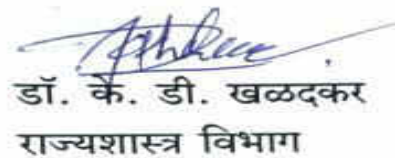 डॉ. के. डी. खळदकर
राज्यशास्त्र विभाग